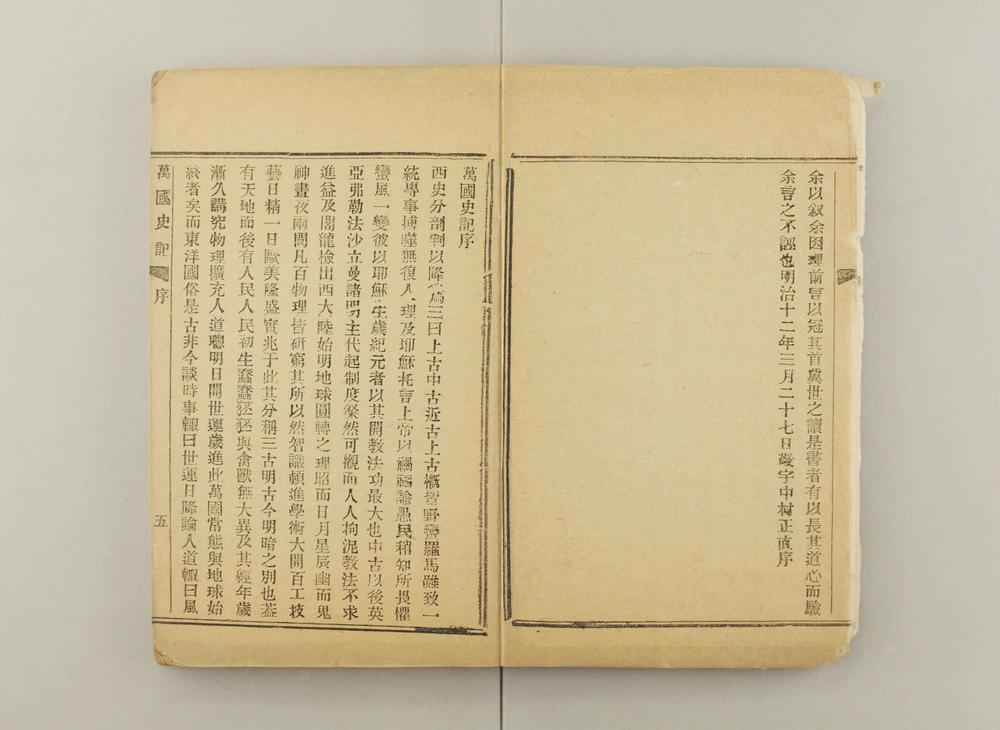 余以叙余因理前言以冠其首冀世之讀是書者有以長其道心而驗
余言之不誣也明治十二年三月二十七日敬宇中村正直序
萬國史記序
西史分剖判以降爲三曰上古中古近古上古概皆野蠻羅馬雖致一
統專事搏噬無復人理及耶穌托言上帝以禍福諭愚民稍知所畏懼
蠻風一變彼以耶穌生歲紀元者以其開教法功最大也中古以後英
亞弗勒法沙立曼諸明主代起制度粲然可觀而人人拘泥教法不求
進益及閣龍檢出西大陸始明地球圓轉之理昭而日月星辰幽而鬼
神晝夜雨閒凡百物理皆研窮其所以然智識頓進學術大開百工技
藝日精一日歐美隆盛實兆于此其分稱三古明古今明暗之別也蓋
有天地而後有人民人民初生蠢蠢狉狉與禽獸無大異及其經年歲
漸久講究物理擴充人道聰明日開世運歲進此萬國常態與地球始
終者矣而東洋國俗是古非今談時事輙曰世運日降論人道輙曰風
萬國史記 序 五